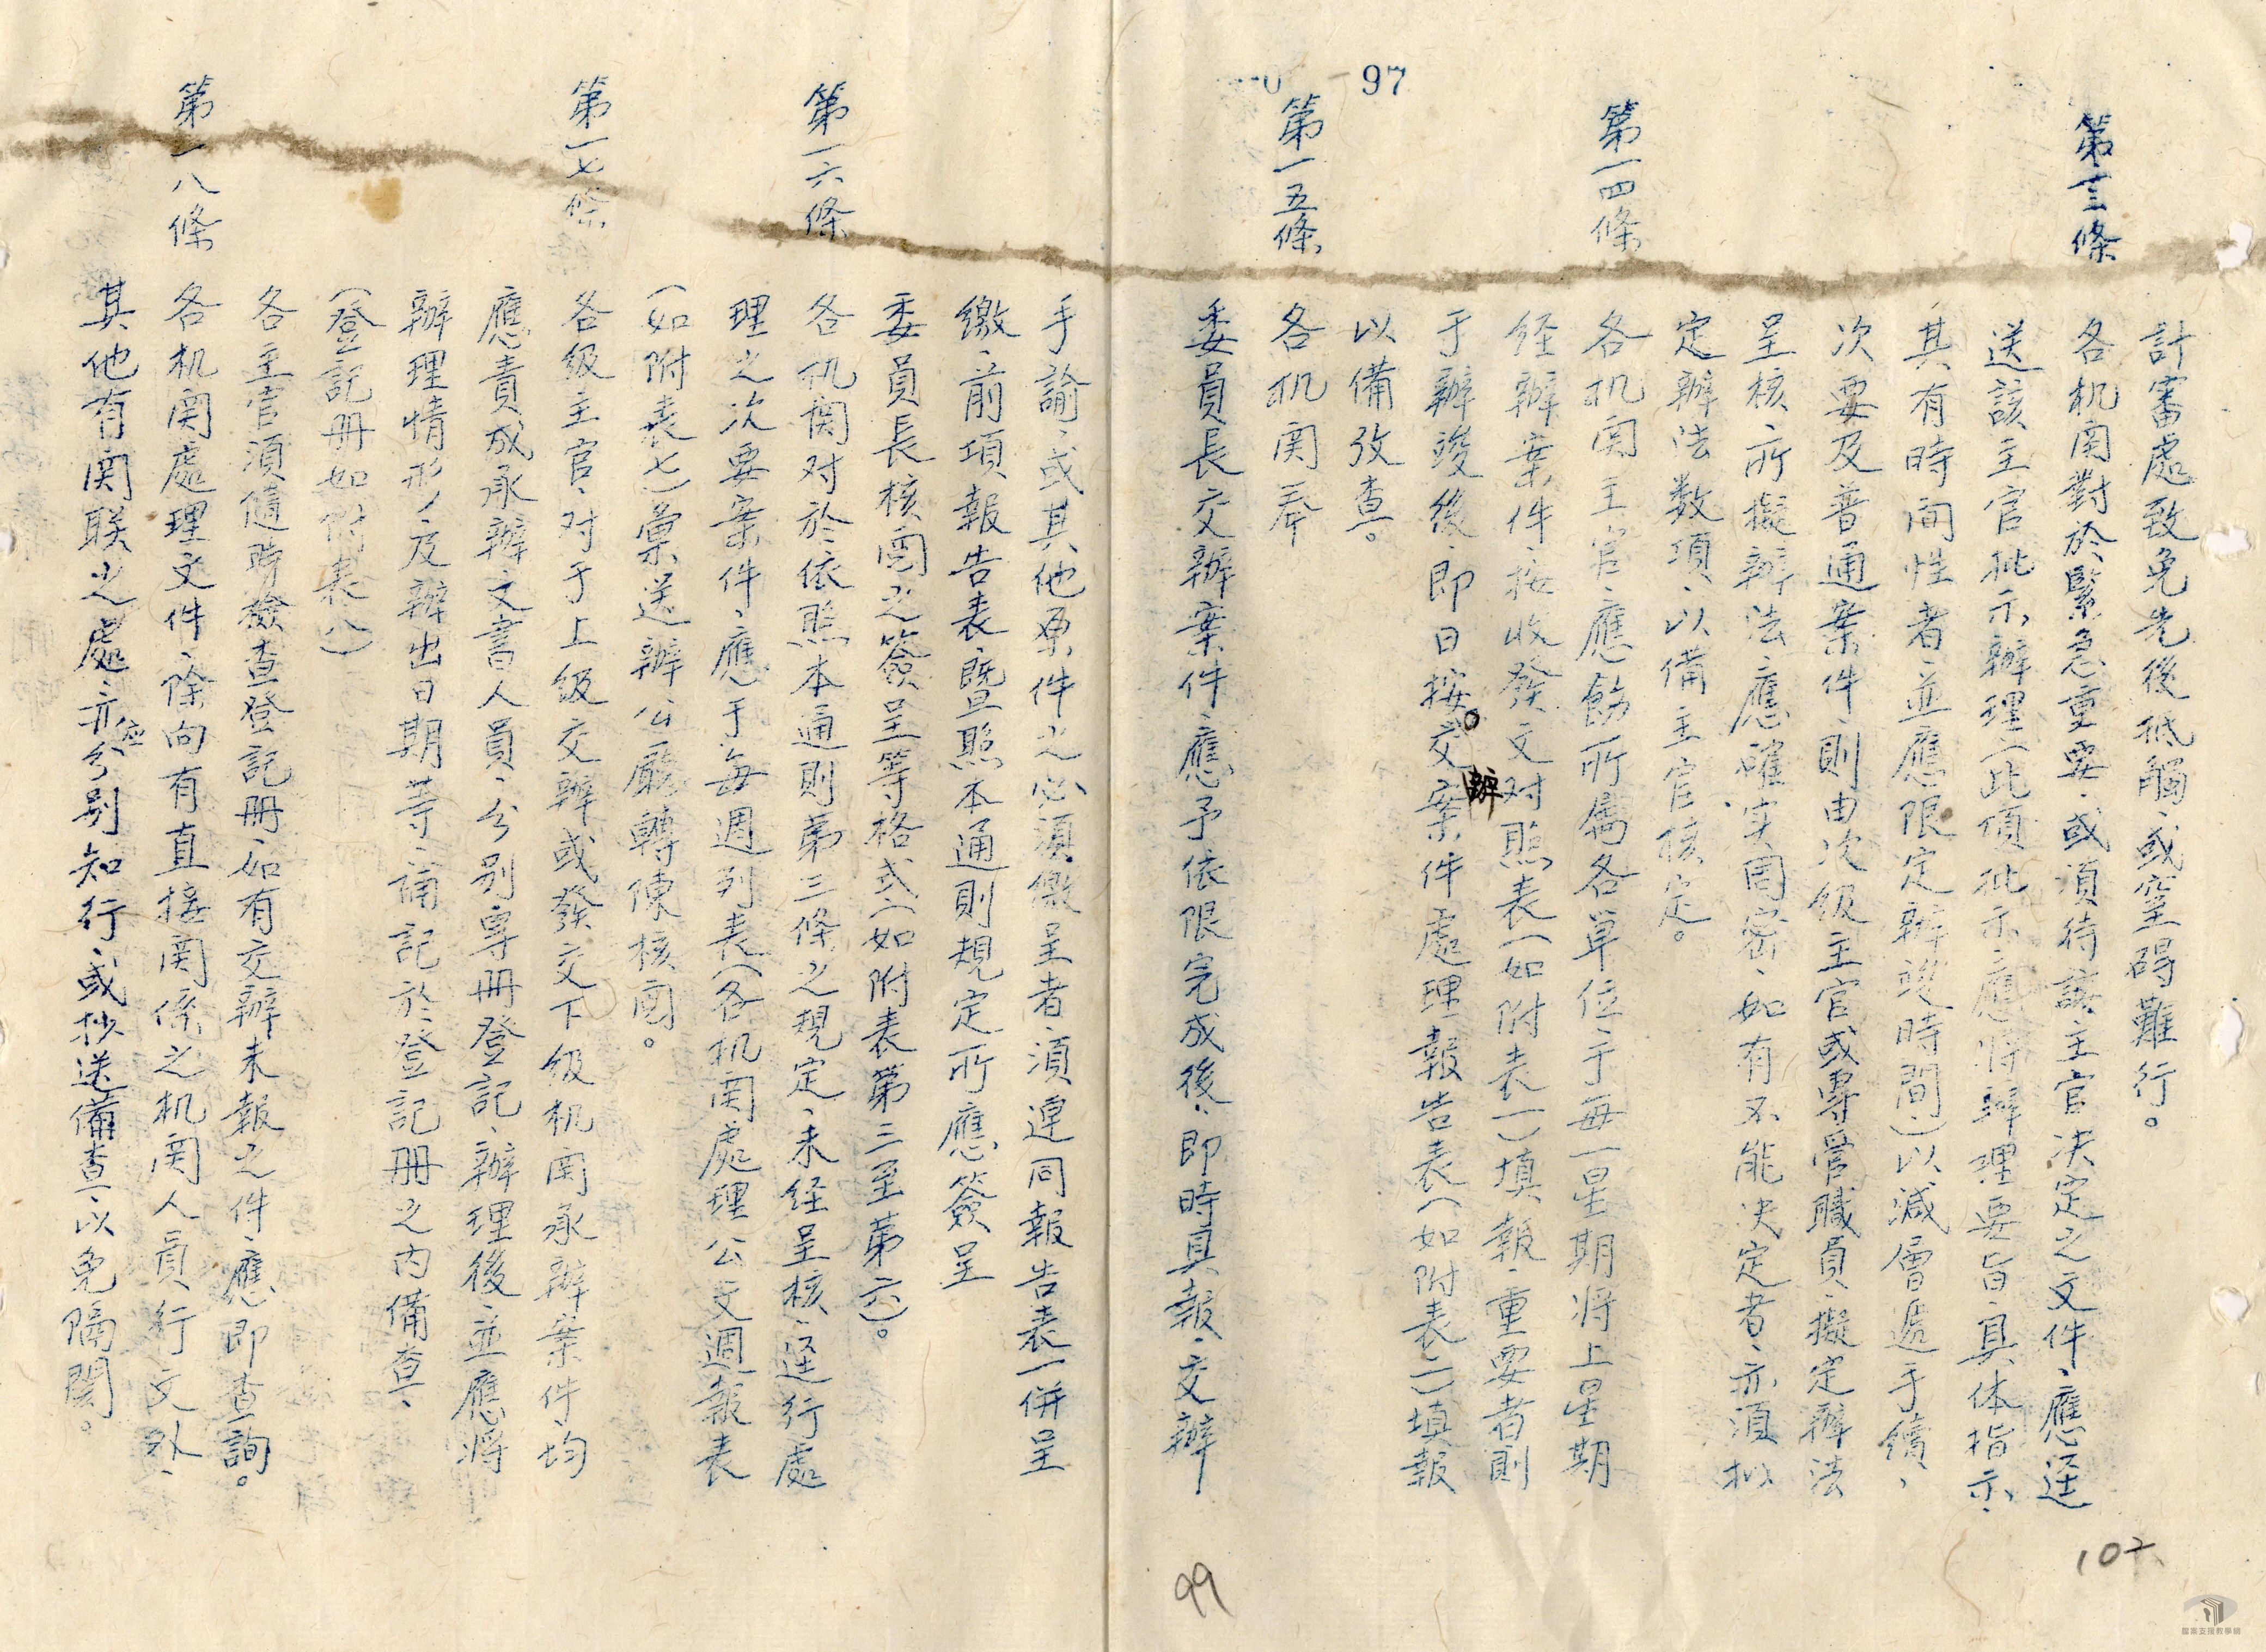 97
計審處致免先後抵觸、或窒碍難行。
第一三條
各机関對於緊急重要、或須待該主官決定之文件、應逕
送該主官批示辦理（此項批示、應將辦理要旨、具体指示、
其有時间性者、並應限定辦竣時間）以減層遞手續、
次要及普通案件、則由次级主官或專管職員、擬定辦法
呈核、所擬辦法、應確实周密、如有不能決定者、亦須拟
定辦法数項、以備主官核定。
第一四條
各机関主官、應飭所屬各單位、于每一星期將上星期
经辦案件、按收發文对照表（如附表一）填報、重要者則
于辦竣後、即日按交辦案件處理報告表（如附表二）填報
以備攷查。
第一五條
各机関奉
委員長交辦案件、應予依限完成後、即時具報、交辦
99
102
手諭、或其他原件之必須繳呈者、須連同報告表一併呈
繳、前項報告表、暨照本通則規定所應簽呈
委員長核閱之簽呈等格式（如附表第三至第六）。
第一六條
各机関对於依照本通則第三條之規定、未经呈核、逕行處
理之次要案件、應于每週列表（各机関處理公文週報表
（如附表七）彙送辦公廳轉陳核閱。
第一七條
各级主官、对于上级交辦或發交下级机関承辦案件、均
應責成承辦文書人員、分别專冊登記、辦理後、並應將
辦理情形、及辦出日期等、備記於登記冊之内備查、
（登記冊如附表八）
各主官須隨時檢查登記冊、如有交辦未報之件、應即查詢。
第一八條
各机関處理文件、除向有直接関係之机関人員行文外、
其他有関联之處、亦應分别知行、或抄送備查、以免隔閡。
檔案支援教學網